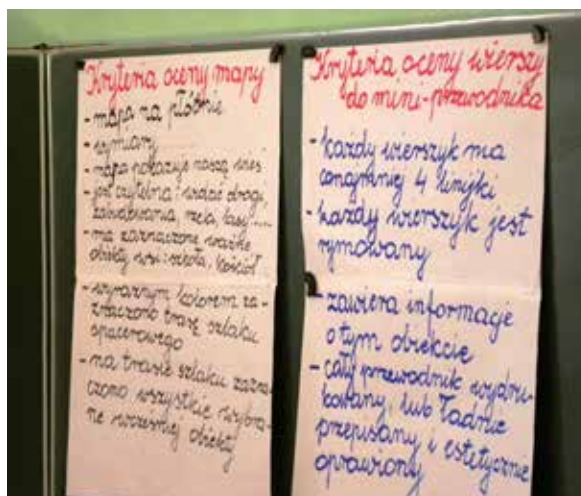 Kryteria oceny mapy
- mapa na płótnie
- wymiary
- mapa pokazuje naszą wieś
- jest czytelna: widać drogi,
zabudowania, pola, lasy.....
- ma zaznaczone ważne
obiekty wsi: szkoła, kościół
- wyraźnym kolorem za-
znaczono trasę szlaku
spacerowego
- na trasie szlaku zazna-
czono wszystkie wybra-
ne wcześniej obiekty
Kryteria oceny wierszy
do mini-przewodnika
- każdy wierszyk ma
conajmniej 4 linijki
- każdy wierszyk jest
rymowany
- zawiera informacje
o tym obiekcie
- cały przewodnik wydru-
kowany, lub ładnie
przepisany i estetycznie
oprawiony